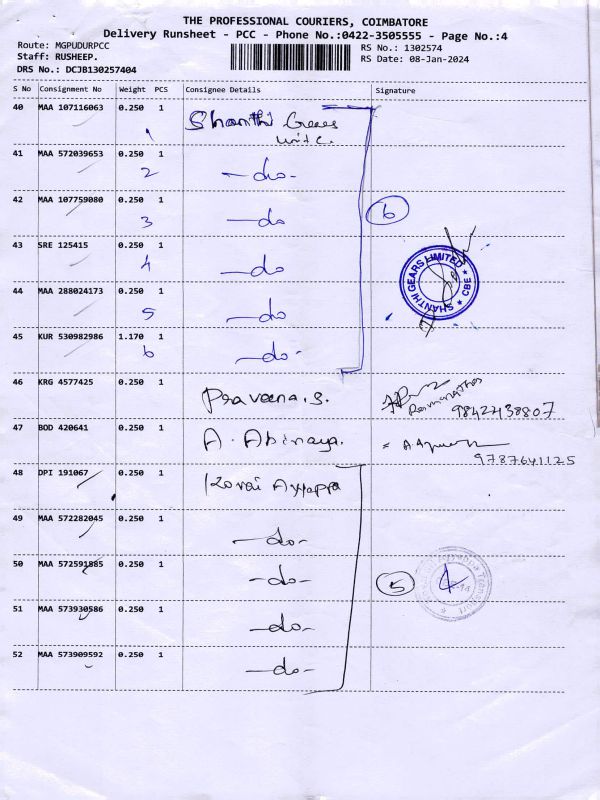 THE PROFESSIONAL COURIERS, COIMBATORE
Delivery Runsheet - PCC - Phone No.:0422-3505555 - Page No.:4
Route: MGPUDURPCC
RS No.: 1302574
Staff: RUSHEEP.
RS Date: 08-Jan-2024
DRS No.: DCJB130257404
S No Consignment No Weight PCS Consignee Details Signature
40 MAA 107116063 0.250 1 Shanthi Gears
1 unit c.
41 MAA 572039653 0.250 1
2 -do-
42 MAA 107759080 0.250 1
3 -do 6
43 SRE 125415 0.250 1
4 -do
SHANTHI GEARS LIMITED * CBE *
44 MAA 288024173 0.250 1
5 -do
45 KUR 530982986 1.170 1
6 -do-
46 KRG 4577425 0.250 1 Praveena.S.
9842438807
47 BOD 420641 0.250 1 A. Abinaya.
9787641125
48 DPI 191067 0.250 1 Kovai Ayyappa
49 MAA 572282045 0.250 1
-do-
50 MAA 572591885 0.250 1 -do- 5
51 MAA 573930586 0.250 1
-do-
52 MAA 573909592 0.250 1
-do-